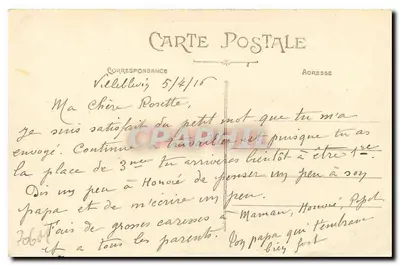 CARTE POSTALE
CORRESPONDANCE
ADRESSE
Villeblevin 5/4/16
Ma Chère Rosette,
Je suis satisfait du petit mot que tu m'a
envoyé. Continue à travailler puisque tu as
la place de 3me tu arriveras bientôt à être 1re.
Dis un peu à Honoré de penser un peu à son
papa et de m'écrire un peu.
Fais de grosses caresses à Maman, Honoré, Pépé
et à tous les parents.
Ton papa qui t'embrasse
bien fort